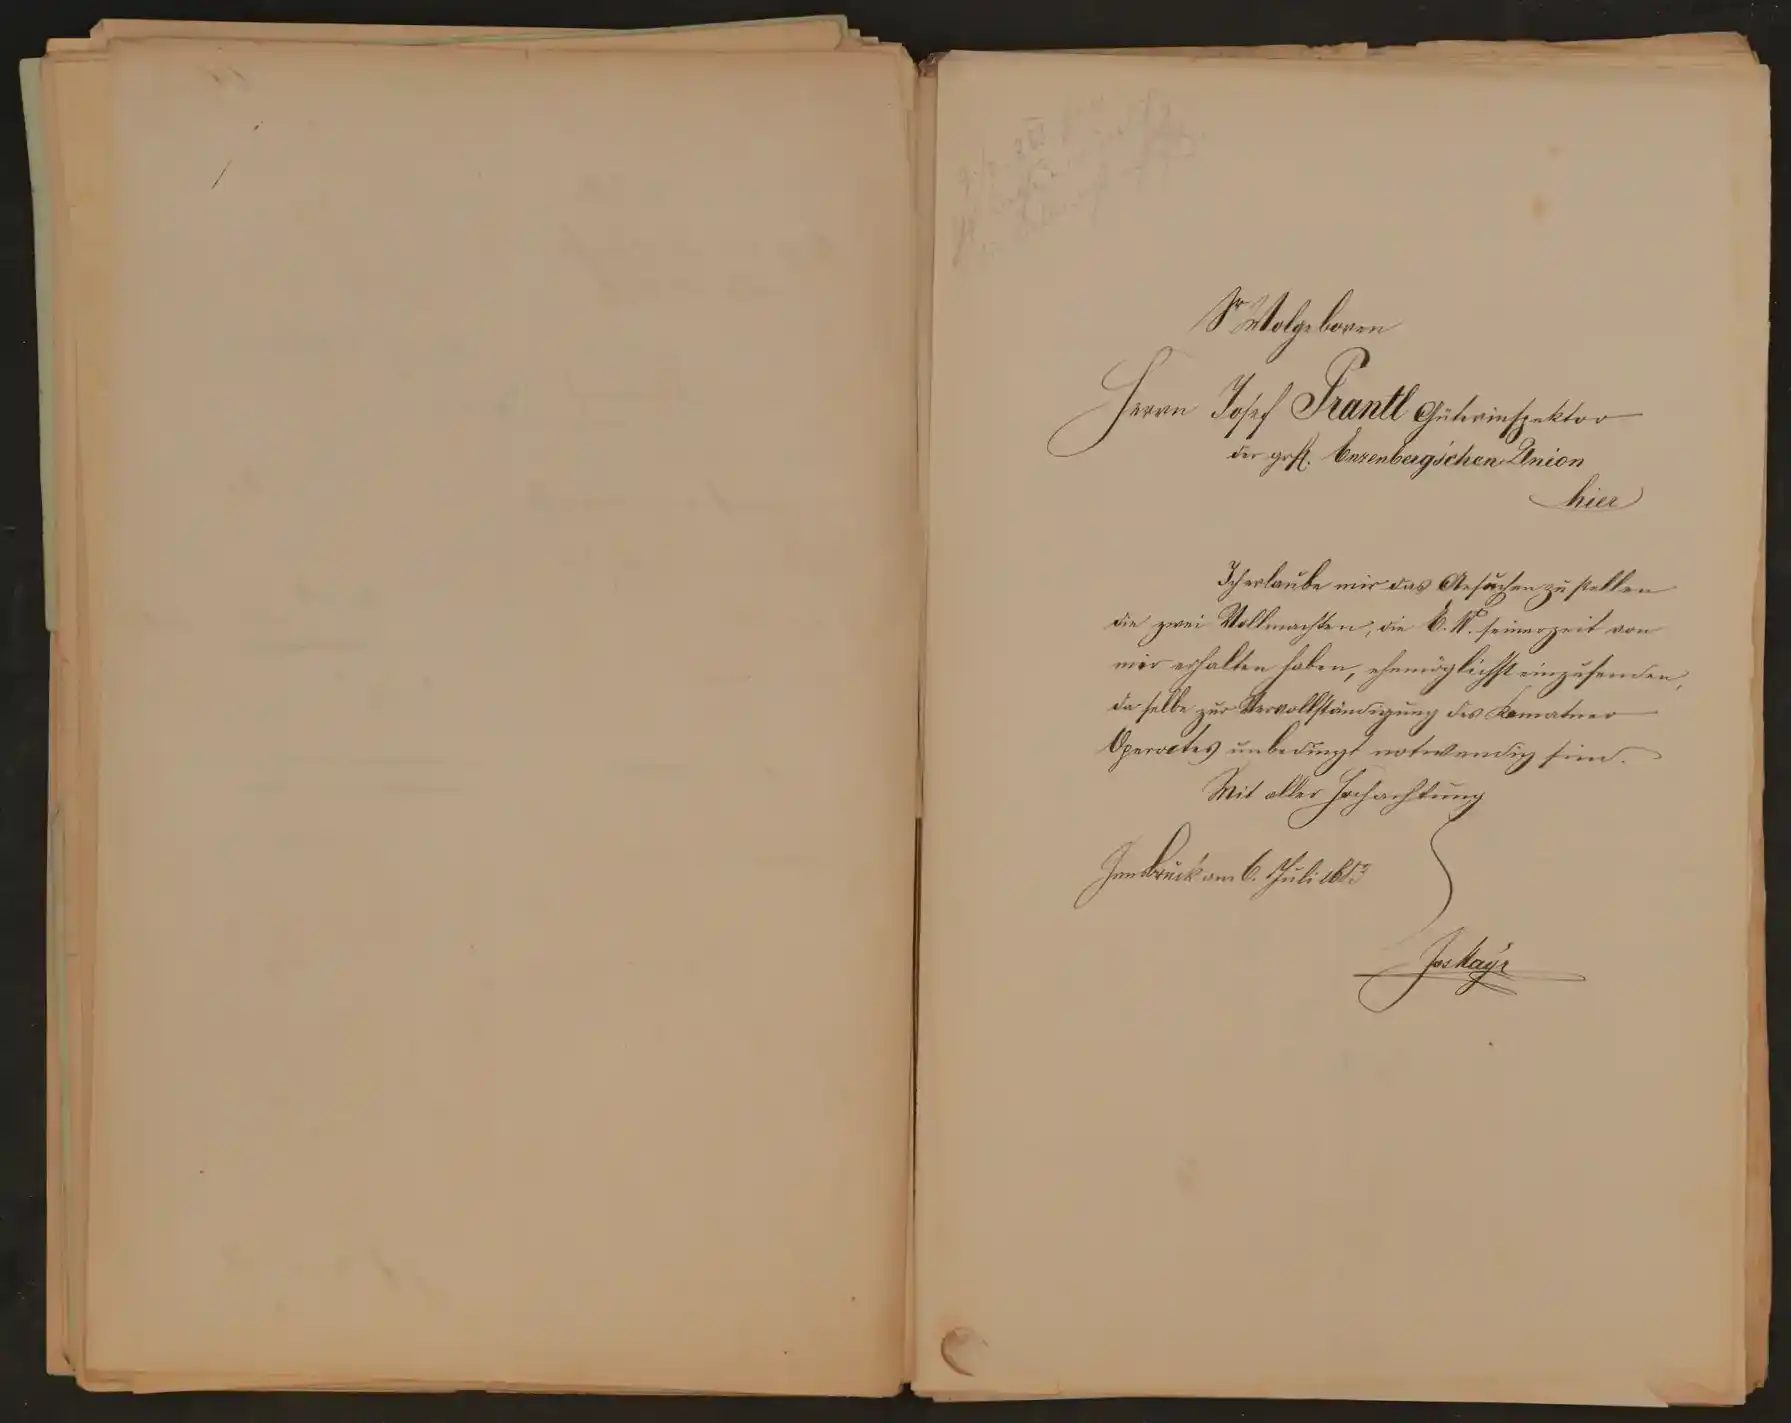 Sr Wolgeboren
Herrn Josef Prantl Güterinspektor
der grfl. Enzenberg'schen Union
hier
Ich erlaube mir das Ansuchen zu stellen
die zwei Vollmachten, die E. W. seinerzeit von
mir erhalten haben, ehemöglichst einzusenden,
da selbe zur Vervollständigung des Kematner
Operates unbedingt notwendig sind.
Mit aller Hochachtung
Innsbruck am 6. Juli 1883
Jos Mayr